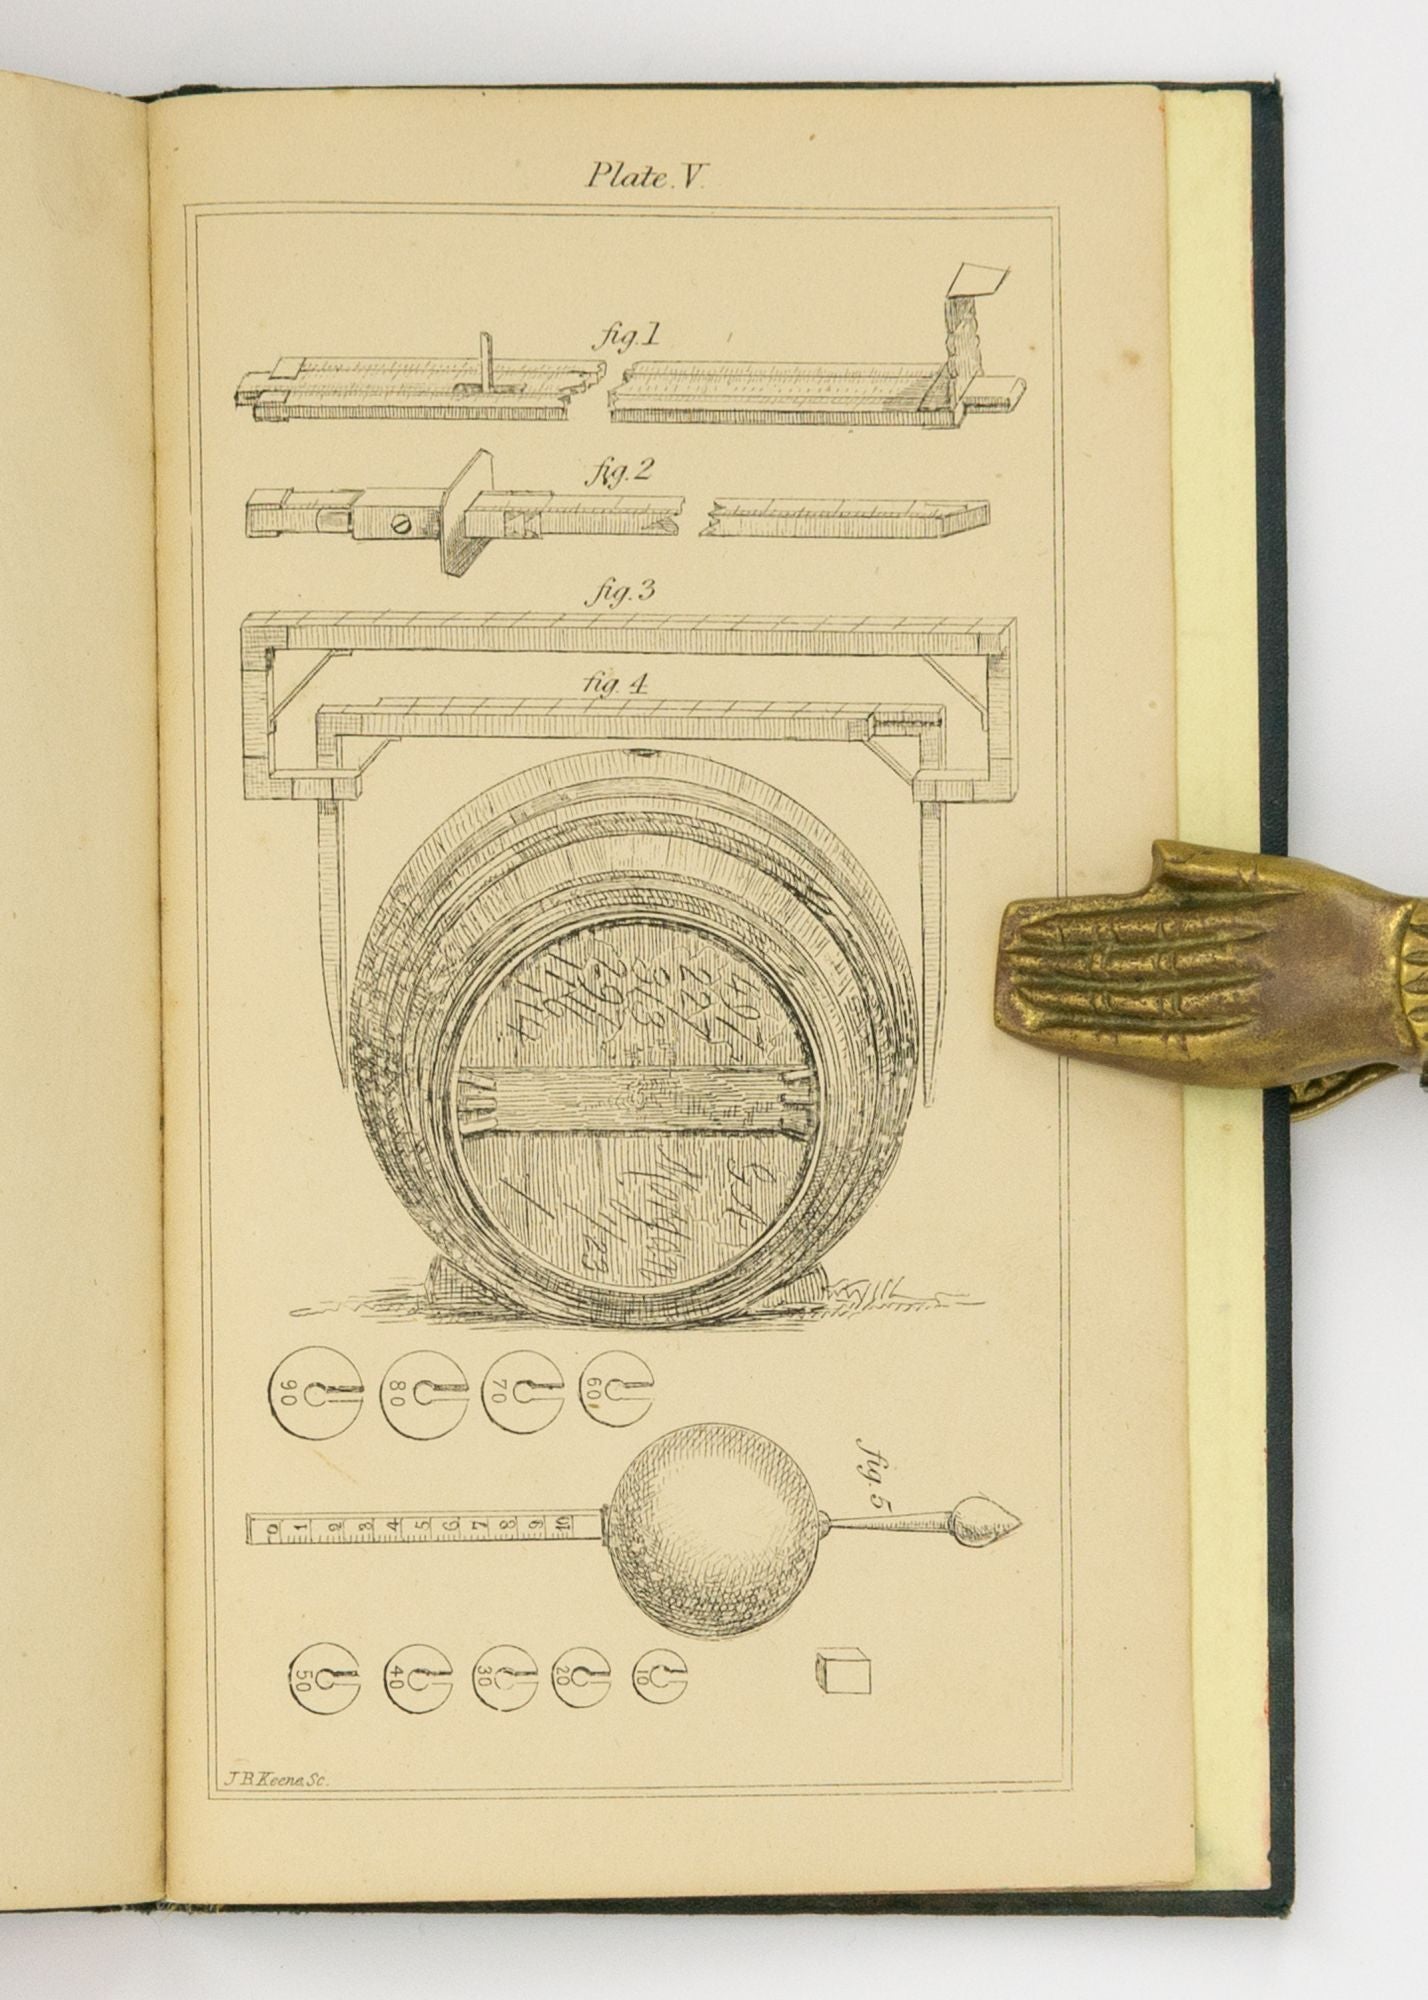 Plate. V.
fig. 1
fig. 2
fig. 3
fig. 4
G A
Morgan
1/23
1
90
80
70
60
fig. 5
0 1 2 3 4 5 6 7 8 9 10
50
40
30
20
10
J B Keene. Sc.